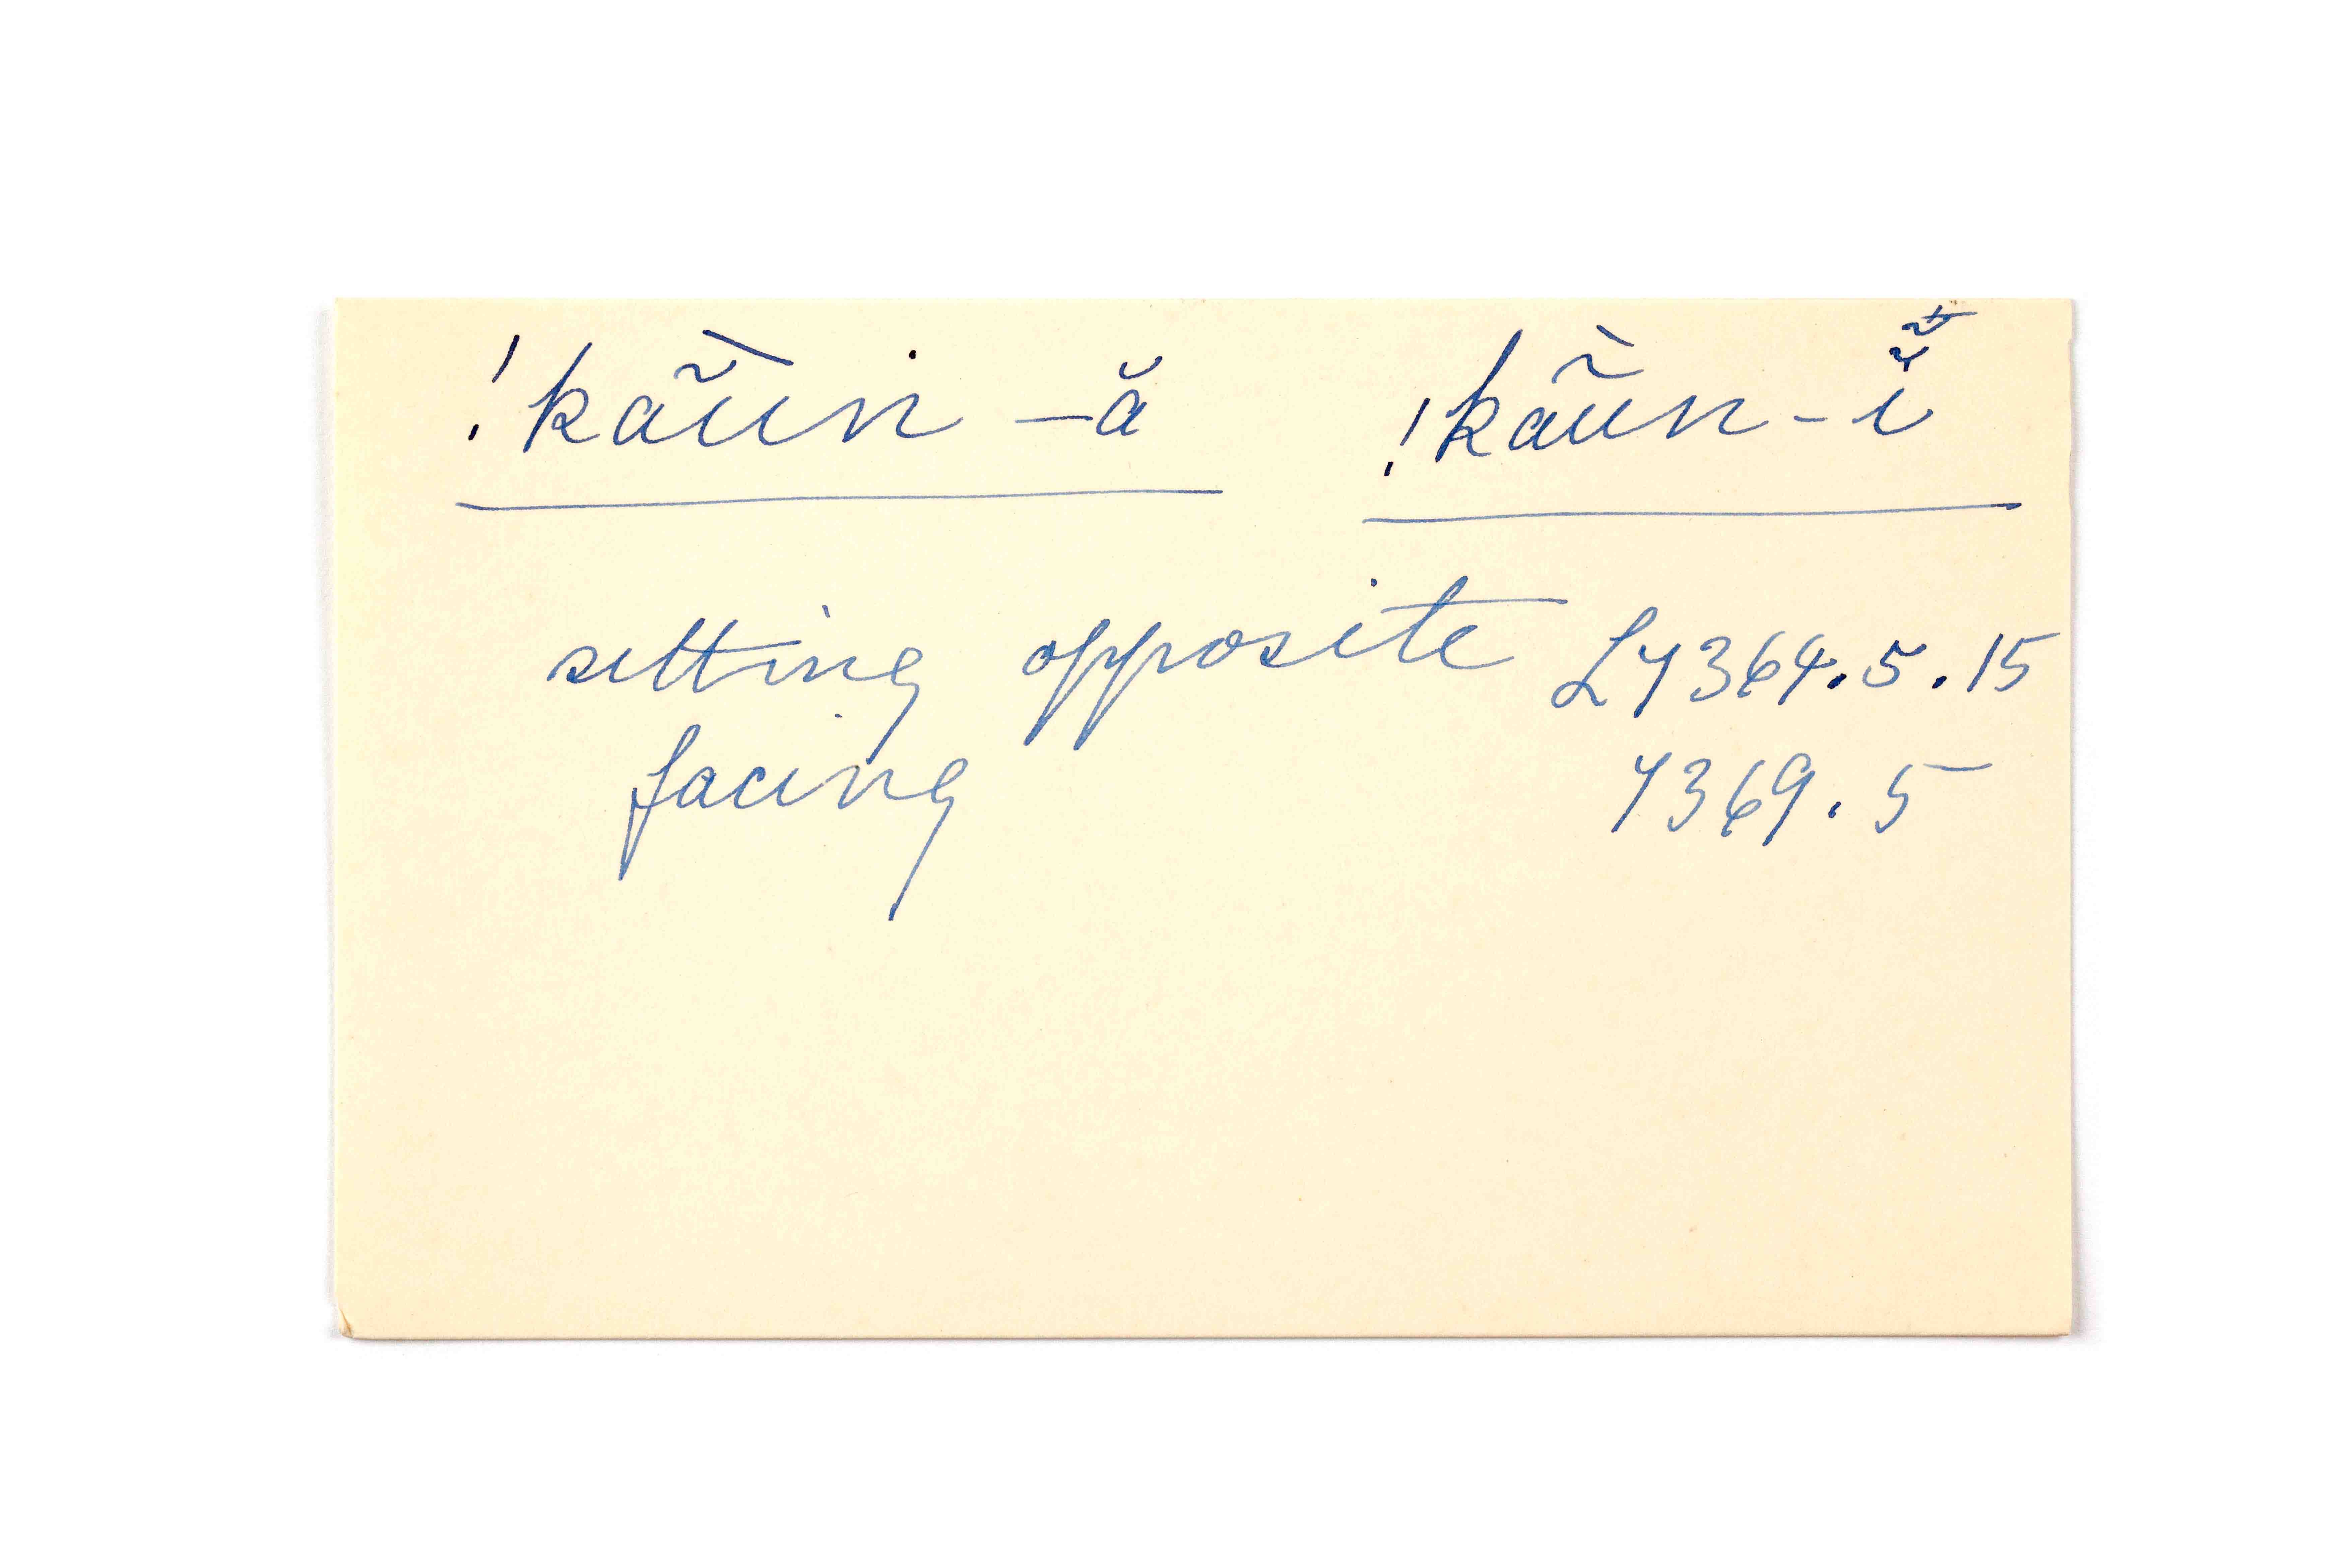 !kãũin -ă !kãũn-ĩ
setting opposite L7364.5.15
facing 7369.5